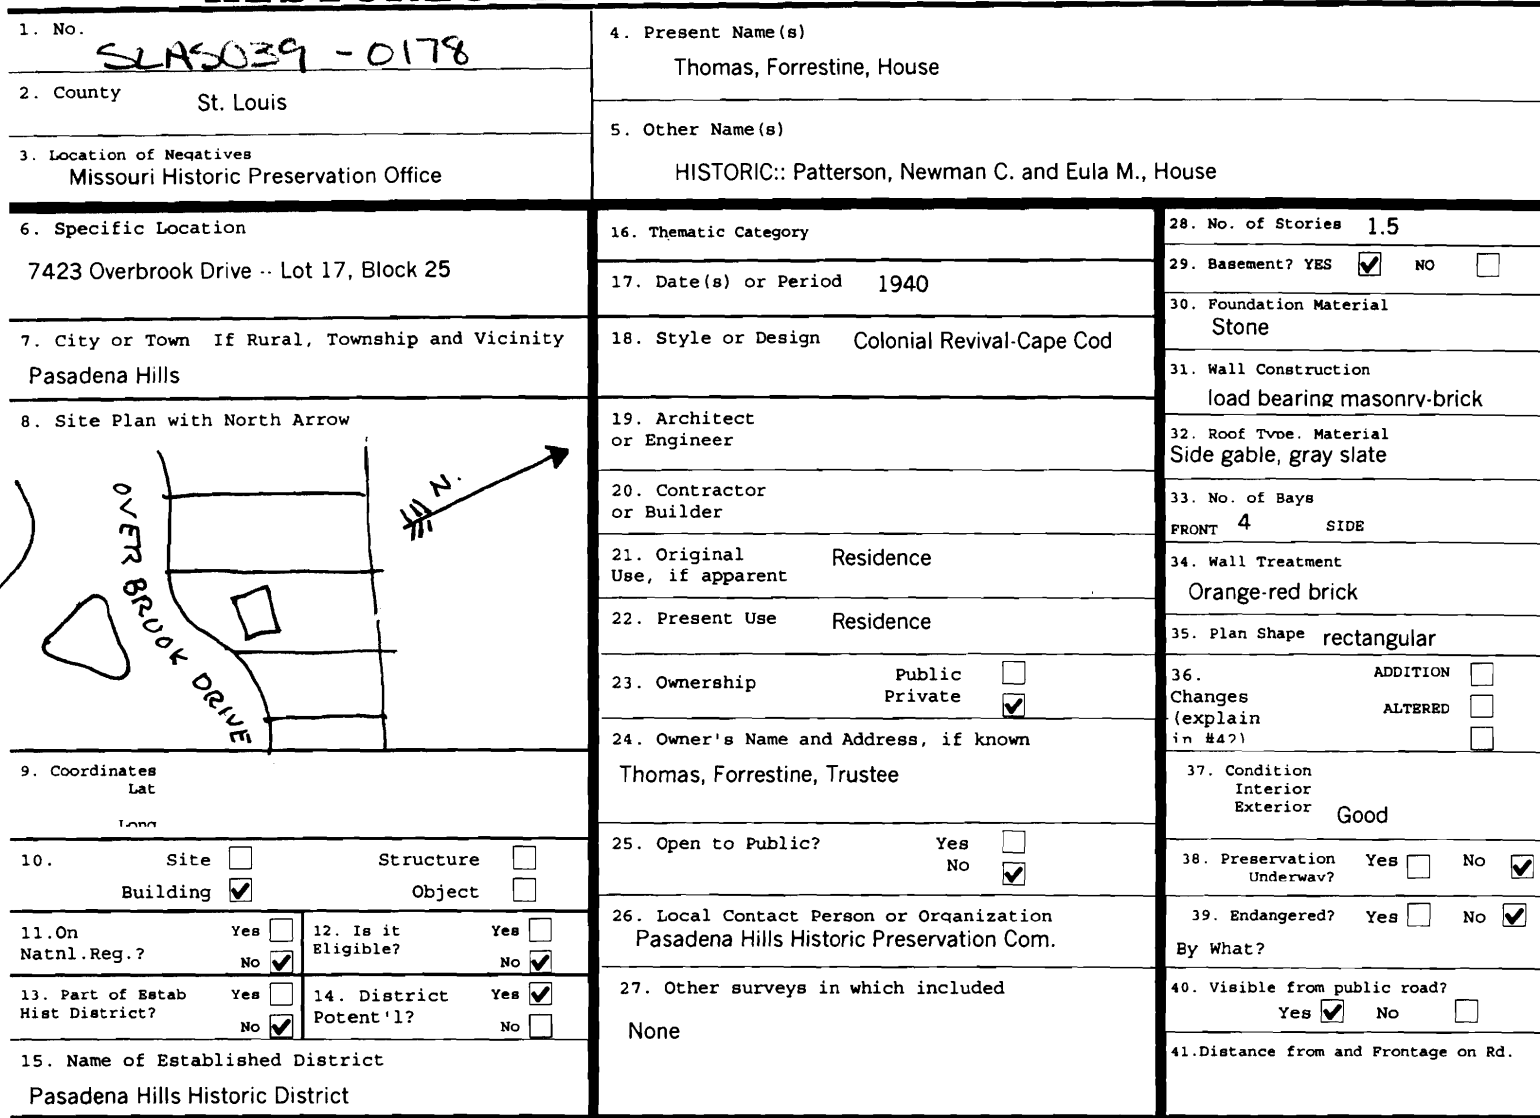 1. No.
SLAS039 - 0178
2. County St. Louis
3. Location of Negatives
Missouri Historic Preservation Office
4. Present Name(s)
Thomas, Forrestine, House
5. Other Name(s)
HISTORIC:: Patterson, Newman C. and Eula M., House
6. Specific Location
7423 Overbrook Drive -- Lot 17, Block 25
7. City or Town If Rural, Township and Vicinity
Pasadena Hills
8. Site Plan with North Arrow
OVERBROOK DRIVE
N.
9. Coordinates
Lat
Long
10. Site Structure
Building Object
11.On Natnl.Reg.? Yes
No
12. Is it Eligible? Yes
No
13. Part of Estab Yes
Hist District? No
14. District Yes
Potent'l? No
15. Name of Established District
Pasadena Hills Historic District
16. Thematic Category
17. Date(s) or Period 1940
18. Style or Design Colonial Revival-Cape Cod
19. Architect
or Engineer
20. Contractor
or Builder
21. Original Residence
Use, if apparent
22. Present Use Residence
23. Ownership Public
Private
24. Owner's Name and Address, if known
Thomas, Forrestine, Trustee
25. Open to Public? Yes
No
26. Local Contact Person or Organization
Pasadena Hills Historic Preservation Com.
27. Other surveys in which included
None
28. No. of Stories 1.5
29. Basement? YES NO
30. Foundation Material
Stone
31. Wall Construction
load bearing masonry-brick
32. Roof Type. Material
Side gable, gray slate
33. No. of Bays
FRONT 4 SIDE
34. Wall Treatment
Orange-red brick
35. Plan Shape rectangular
36. ADDITION
Changes
(explain ALTERED
in #42)
37. Condition
Interior
Exterior Good
38. Preservation Yes No
Underway?
39. Endangered? Yes No
By What?
40. Visible from public road?
Yes No
41.Distance from and Frontage on Rd.